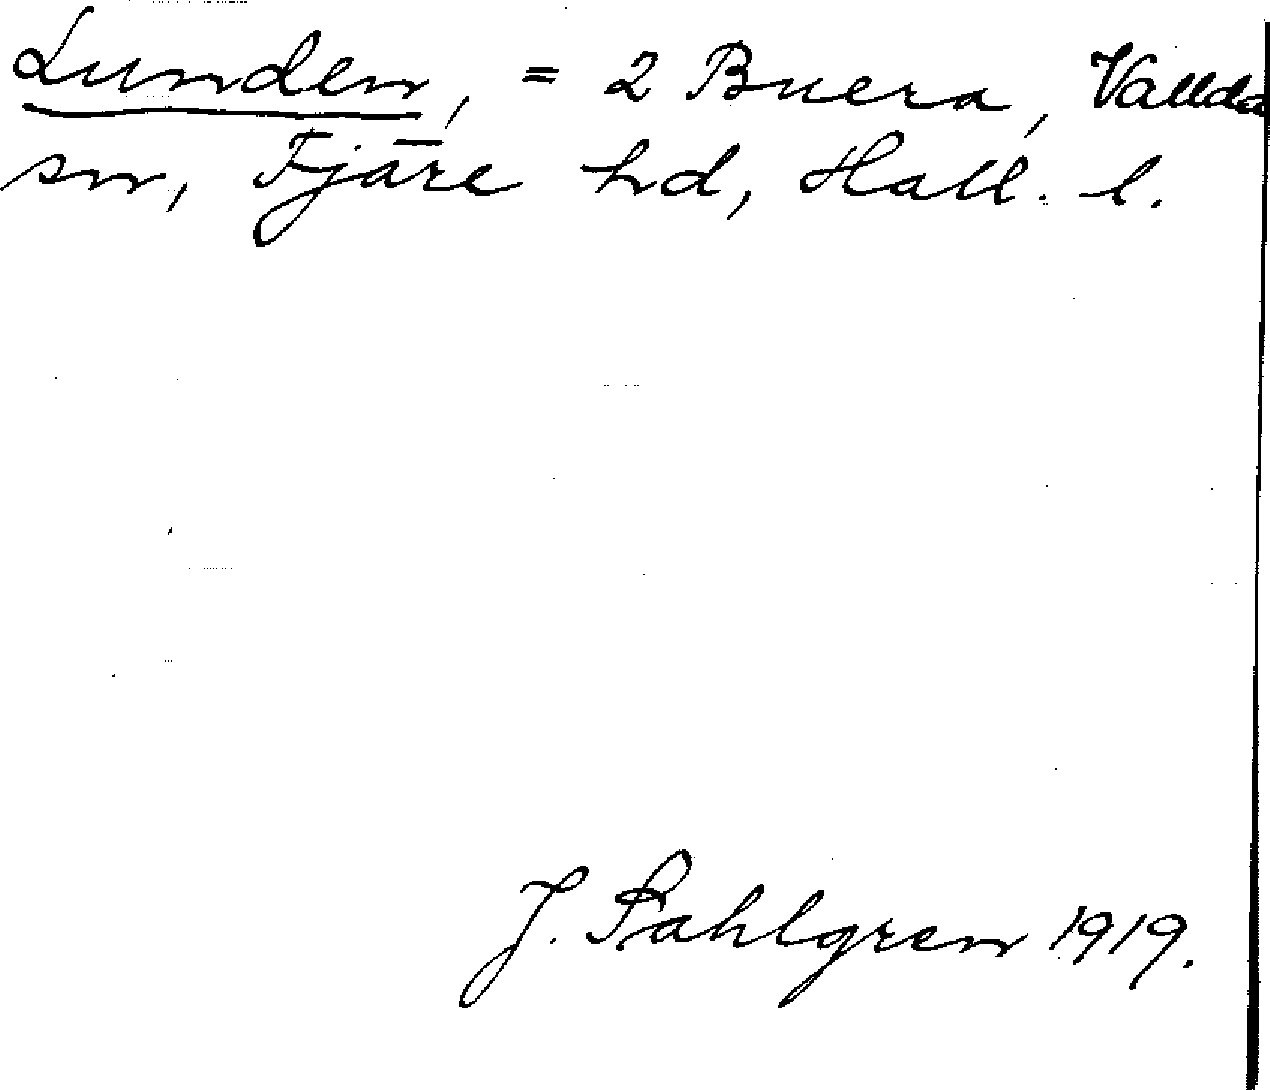 Lunden, = 2 Buera, Vallda
sn, Fjäre hd, Hall. l.
J. Sahlgren 1919.